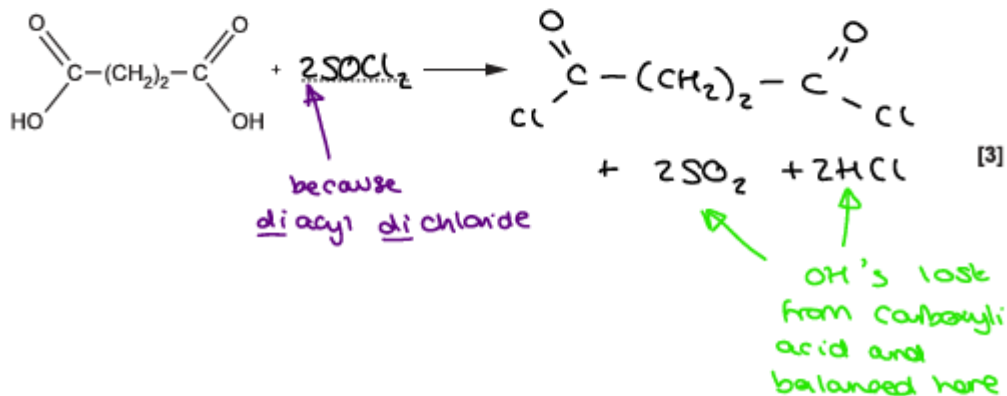 O O O O
C–(CH₂)₂–C + 2SOCl₂ ⟶ C – (CH₂)₂ – C
HO OH Cl Cl
[3]
+ 2SO₂ + 2HCl
because
diacyl dichloride
OH's lost
from carboxyli
acid and
balanced here